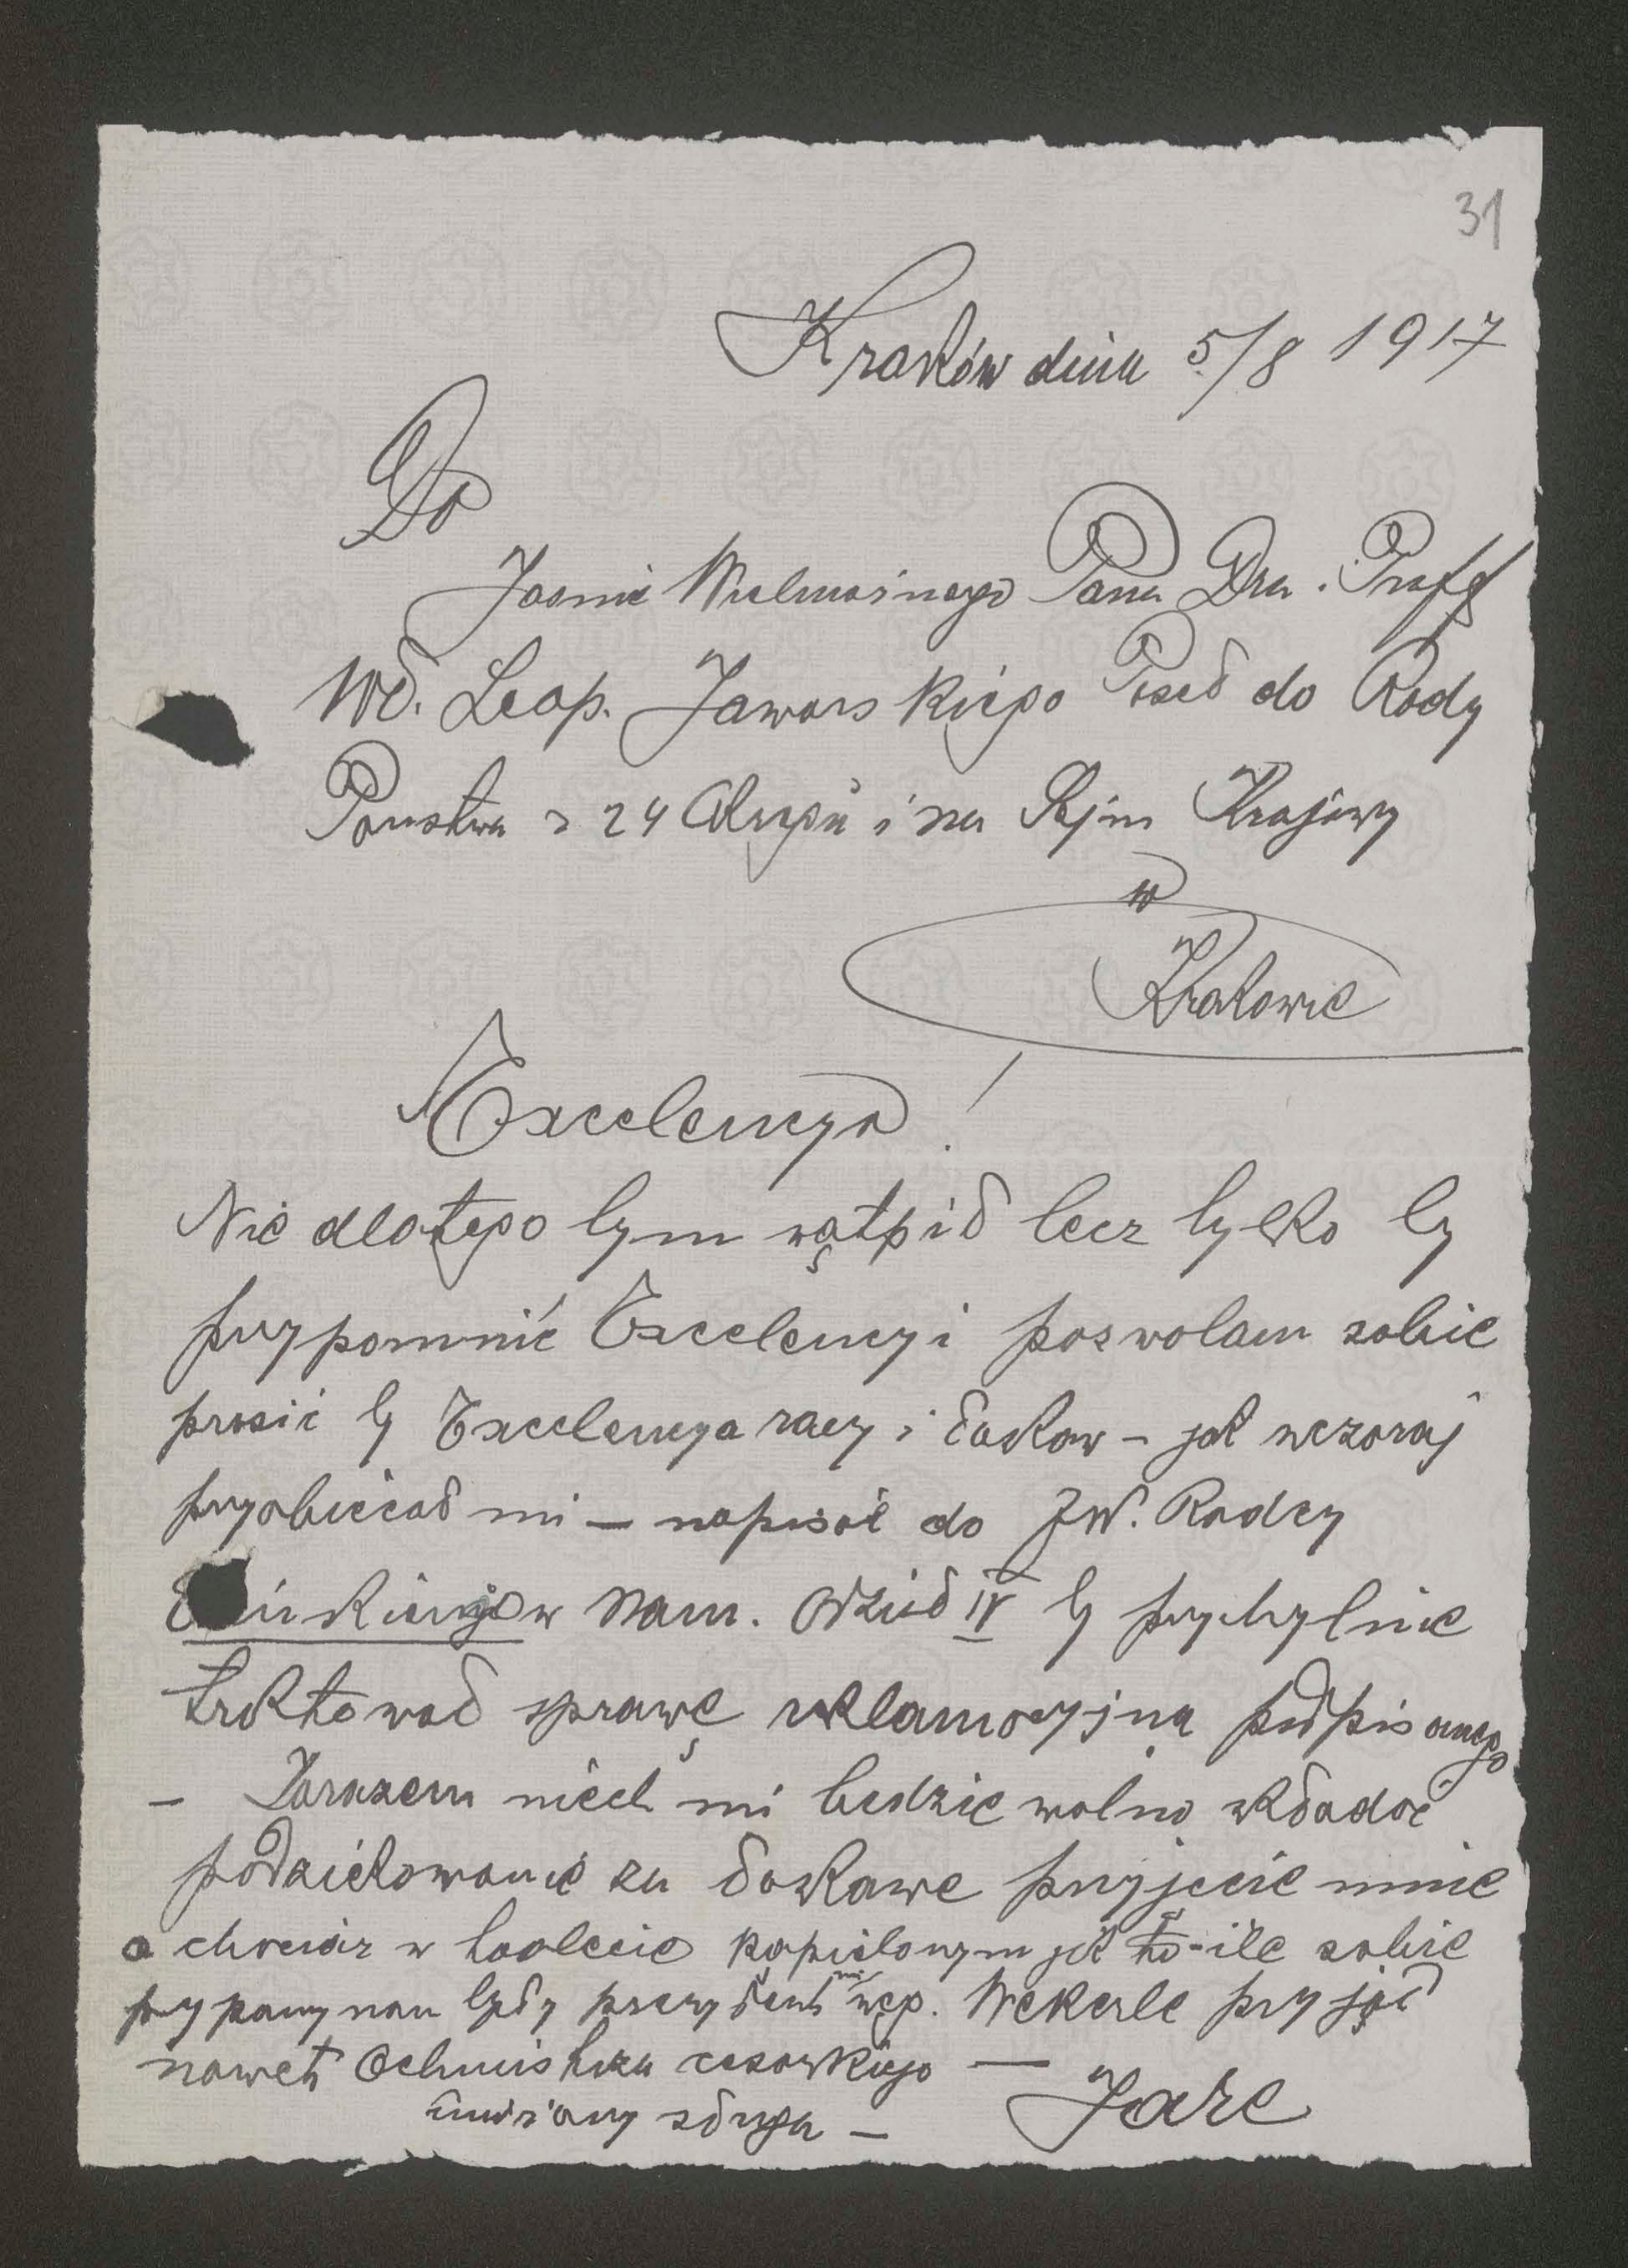 31
Kraków dnia 5/8 1917
Do
Jaśnie Wielmożnego Pana Dra. Proff
Wł. Leop. Jaworskiego Poseł do Rady
Państwa z 24 Okręgu i na Sejm Krajowy
w
Krakowie
Excelencya!
Nie dlatego bym wątpił lecz tylko by
przypomnić Excelencyi pozwolam sobie
prosić by Excelencya raczy i łaskaw – jak wczoraj
przyobiecał mi – napisać do JW. Radcy
w Nam. Odział IV by przychylnie
traktował sprawę reklamacyjną podpisanego
– Zarazem niech mi będzie wolno składać
podziękowanie za łaskawe przyjęcie mnie
a chociaż w toalecie kąpielowym jak o-ile sobie
przypominam byłby prezydent min węg. Wekerle przyjął
nawet Ochmistrza cesarskiego —
uniżony sługa – Jare